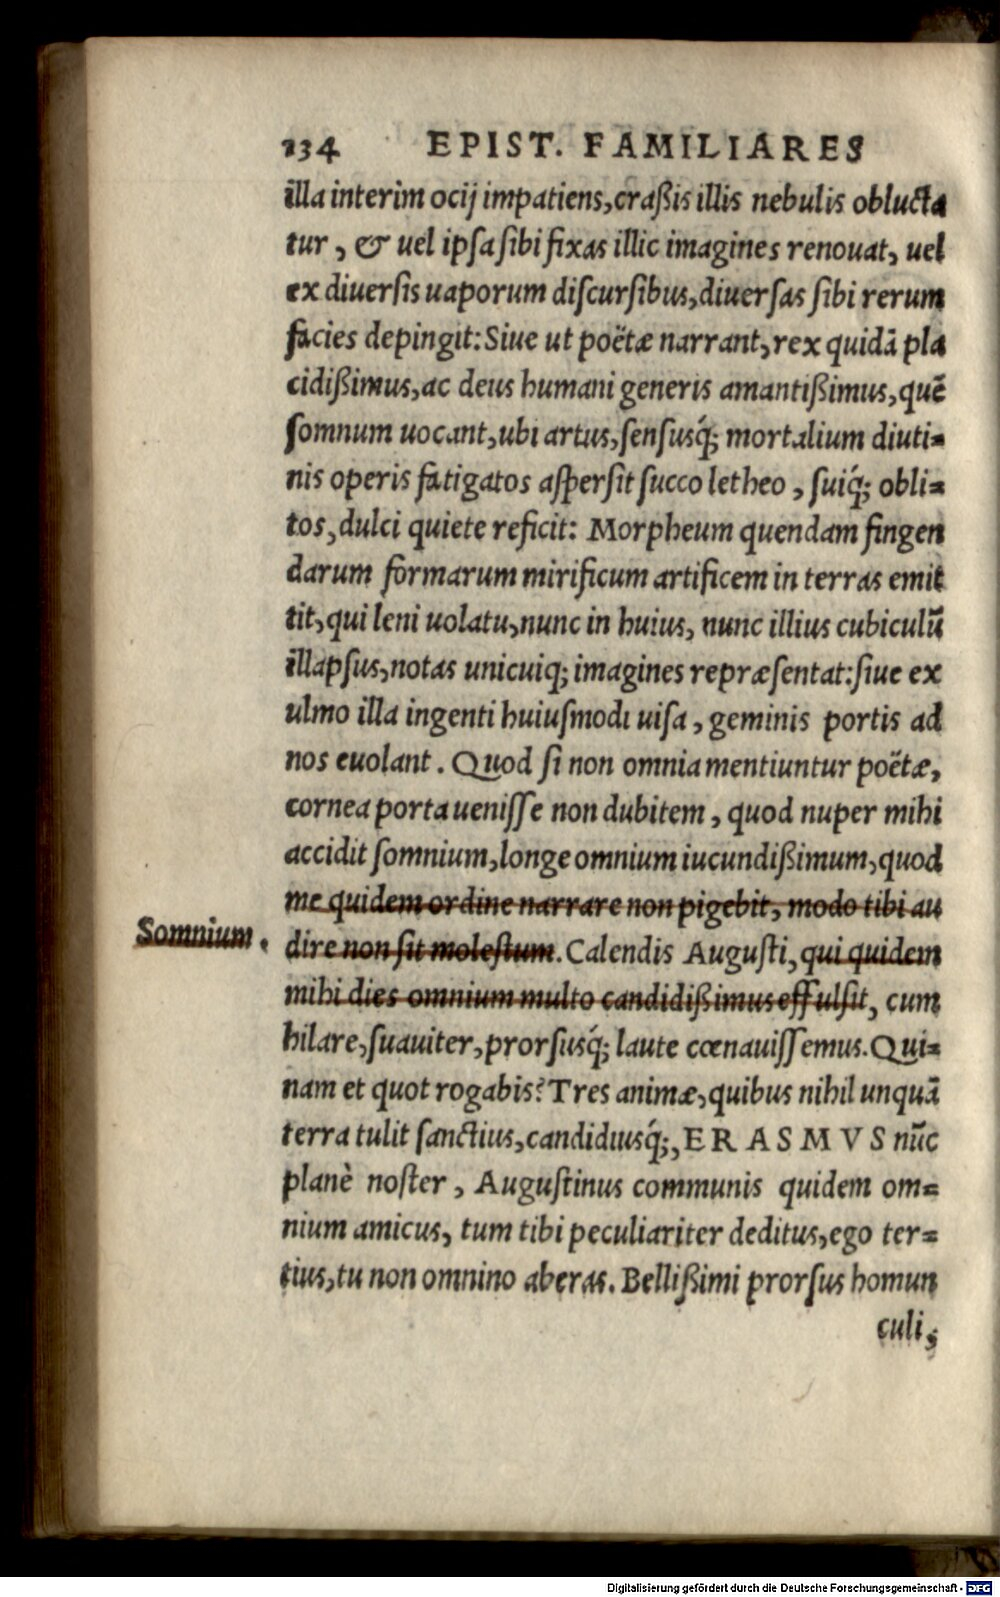 134 EPIST. FAMILIARES
illa interim ocij impatiens, craßis illis nebulis oblucta
tur, & uel ipsa sibi fixas illic imagines renouat, uel
ex diuersis uaporum discursibus, diuersas sibi rerum
facies depingit: Siue ut poëtæ narrant, rex quidā pla
cidißimus, ac deus humani generis amantißimus, quē
somnum uocant, ubi artus, sensusq́; mortalium diuti=
nis operis fatigatos aspersit succo letheo, suiq́; obli=
tos, dulci quiete reficit: Morpheum quendam fingen
darum formarum mirificum artificem in terras emit
tit, qui leni uolatu, nunc in huius, nunc illius cubiculū
illapsus, notas unicuiq; imagines repræsentat: siue ex
ulmo illa ingenti huiusmodi uisa, geminis portis ad
nos euolant. Quod si non omnia mentiuntur poëtæ,
cornea porta uenisse non dubitem, quod nuper mihi
accidit somnium, longe omnium iucundißimum, quod
me quidem ordine narrare non pigebit, modo tibi au
Somnium. dire non sit molestum. Calendis Augusti, qui quidem
mihi dies omnium multo candidißimus effulsit, cum
hilare, suauiter, prorsusq́; laute cœnauissemus. Qui=
nam et quot rogabis? Tres animæ, quibus nihil unquā
terra tulit sanctius, candidiusq́;, ERASMVS nūc
planè noster, Augustinus communis quidem om=
nium amicus, tum tibi peculiariter deditus, ego ter=
tius, tu non omnino aberas. Bellißimi prorsus homun
culi,
Digitalisierung gefördert durch die Deutsche Forschungsgemeinschaft - DFG